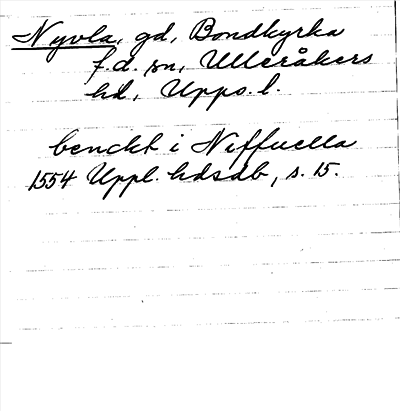 Nyvla, gd, Bondkyrka
f.d. sn, Ulleråkers
hd, Upps. l.
benckt i Niffuella
1554 Uppl. hdsdb, s. 15.